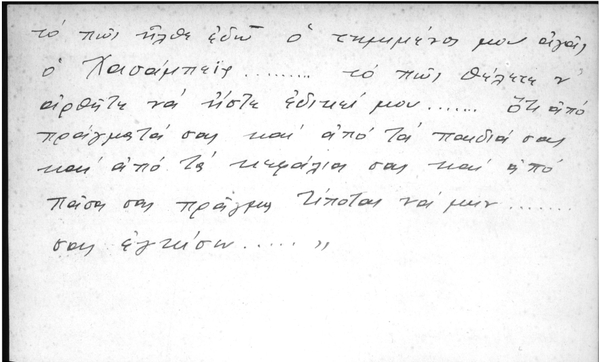 τό πῶς ἦλθε ἐδῶ ὁ τημιμένος μου ἀγᾶς
ὁ Χασάμπεϊς ......... τό πῶς θέλετε ν'
ἀρθῆτε νά ἦστε ἐδικοί μου ....... ὅτι ἀπό
πράγματά σας καί ἀπό τά παιδιά σας
καί ἀπό τά κεφάλια σας καί ἀπό
πᾶσα σας πρᾶγμα τίποτας νά μην .......
σας ἐγκίσω ..... "